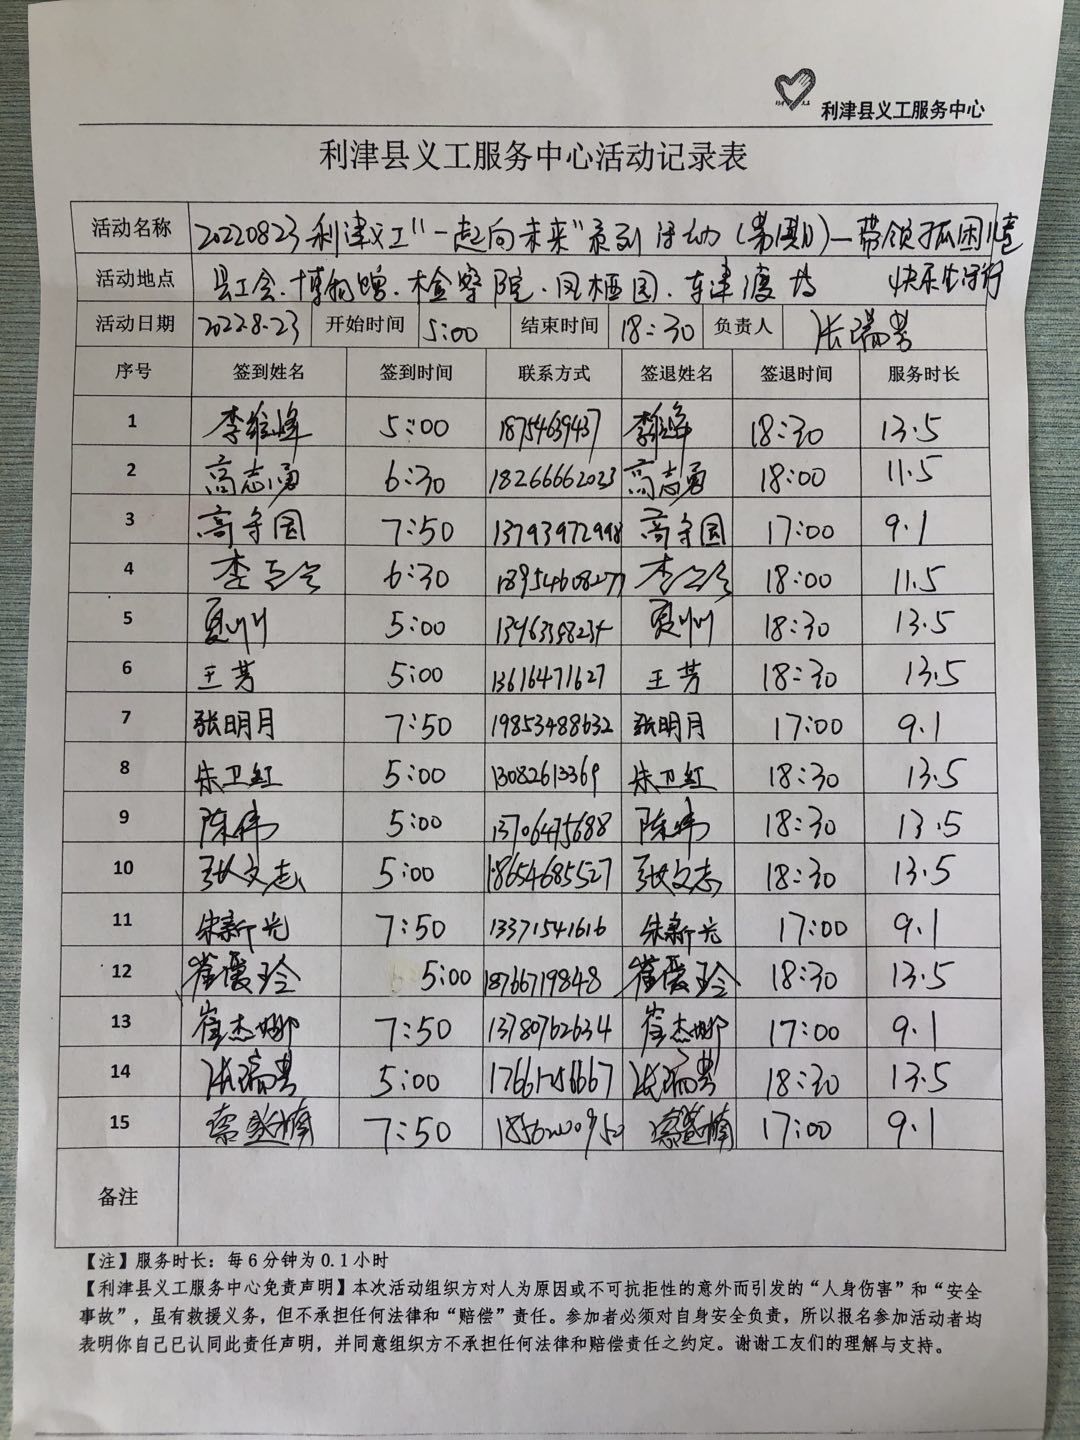 利津县义工服务中心
利津县义工服务中心活动记录表
活动名称 20220823利津义工"一起向未来"系列活动(第期)—带领孤困儿童
活动地点 县工会.博物馆.检察院.凤栖园.东津渡 快乐生活行
活动日期 2022.8.23 开始时间 5:00 结束时间 18:30 负责人 张瑞
序号 签到姓名 签到时间 联系方式 签退姓名 签退时间 服务时长
1 李维峰 5:00 18754639437 李维峰 18:30 13.5
2 高志勇 6:30 18266662023 高志勇 18:00 11.5
3 高守国 7:50 13793972998 高守国 17:00 9.1
4 李 6:30 李 18:00 11.5
5 夏州 5:00 夏州 18:30 13.5
6 王芳 5:00 13616471627 王芳 18:30 13.5
7 张明月 7:50 19853488632 张明月 17:00 9.1
8 朱卫红 5:00 13082613369 朱卫红 18:30 13.5
9 陈伟 5:00 13706475688 陈伟 18:30 13.5
10 张文志 5:00 18654685527 张文志 18:30 13.5
11 朱新光 7:50 13371541616 朱新光 17:00 9.1
12 崔爱玲 5:00 18766719848 崔爱玲 18:30 13.5
13 崔杰娜 7:50 13780762634 崔杰娜 17:00 9.1
14 张瑞 5:00 张瑞 18:30 13.5
15 7:50 17:00 9.1
备注
【注】服务时长：每6分钟为0.1小时
【利津县义工服务中心免责声明】本次活动组织方对人为原因或不可抗拒性的意外而引发的“人身伤害”和“安全
事故”，虽有救援义务，但不承担任何法律和“赔偿”责任。参加者必须对自身安全负责，所以报名参加活动者均
表明你自己已认同此责任声明，并同意组织方不承担任何法律和赔偿责任之约定。谢谢工友们的理解与支持。